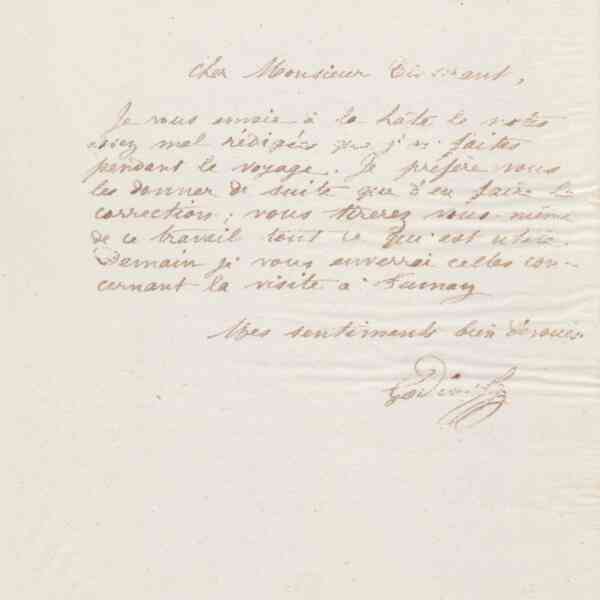 Cher Monsieur Tisserant,
Je vous envoie à la hâte les notes
assez mal rédigées que j'ai faites
pendant le voyage. Je préfère vous
les donner de suite que d'en faire la
correction; vous tirerez vous-même
de ce travail tout ce qui est utile.
Demain je vous enverrai celles con-
cernant la visite à
Mes sentiments bien dévoués